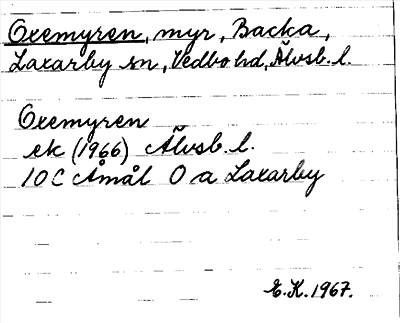 Oxemyren, myr, Backa,
Laxarby sn, Vedbo hd, Älvsb. l.
Oxemyren
ek (1966) Älvsb. l.
10 C Åmål O a Laxarby
E.K. 1967.